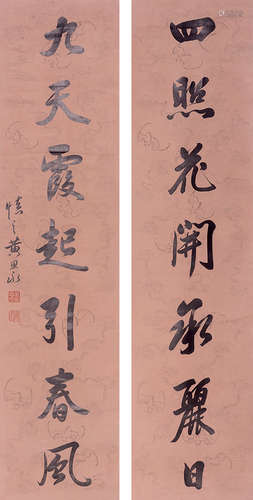 四照花開承麗日
九天霞起引春風
慎之黃思永